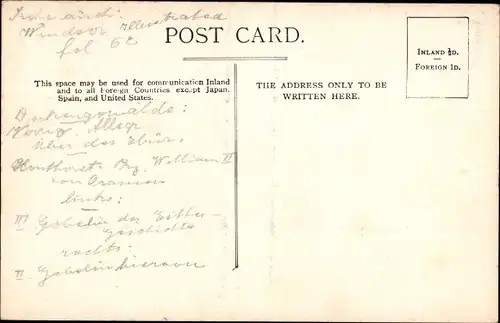 Windsor illustrated
fol 62
POST CARD.
INLAND ½D.
FOREIGN 1D.
This space may be used for communication Inland
and to all Foreign Countries except Japan,
Spain, and United States.
THE ADDRESS ONLY TO BE
WRITTEN HERE.
Deckengemälde:
König. Alleg
über der Thür.
Honthorst: Prz. William II
von Oranien
links:
III Gobelin der Esther-
Geschichte
rechts:
II. Gobelin hiervon